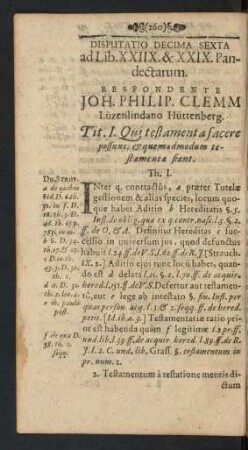 (260)
DISPUTATIO DECIMA SEXTA
ad Lib. XXIIX. & XXIX. Pan-
dectarum.
RESPONDENTE
JOH. PHILIP. CLEMM
Lüzenlindano Hüttenberg.
Tit. I. Qui testamenta facere
possunt, & quemadmodum te-
stamenta fiant.
Th. I.
INter q. contractus, a præter Tutelæ
gestionem & alias species, locum quo-
que habet Aditio b Hereditatis §. 5.
Inst. de oblig. quæ ex q. contr. nasc. l. 5. §. 2.
ff. de O. & A. Definitur Hereditas c suc-
cessio in universum jus, quod defunctus
habuit l. 24. ff. de V. S. l. 62. ff. de R. J. [Strauch.
IX. 2.] Aditio ejus tunc locũ habet, quan-
do est d delata l. 21. §. 2. ff. de acquir.
hered. l. 151. ff. de V. S. Defertur aut testamen-
tô, aut e lege ab intestato §. fin. Inst. per
quas person. acq. l. 1. & 2. seqq. ff. de hered.
petit. [t. d. ib. a. 9.] Testamentariæ ratio pri-
or est habenda quàm f legitimæ l. 2. pr. ff.
und. lib. l. 39. ff. de acquir. hered. l. 89. ff. de R.
J. l. 2. C. und. lib. Grass. §. testamentum in
pr. num. 2.
2. Testamentum à testatione mentis di-
ctum